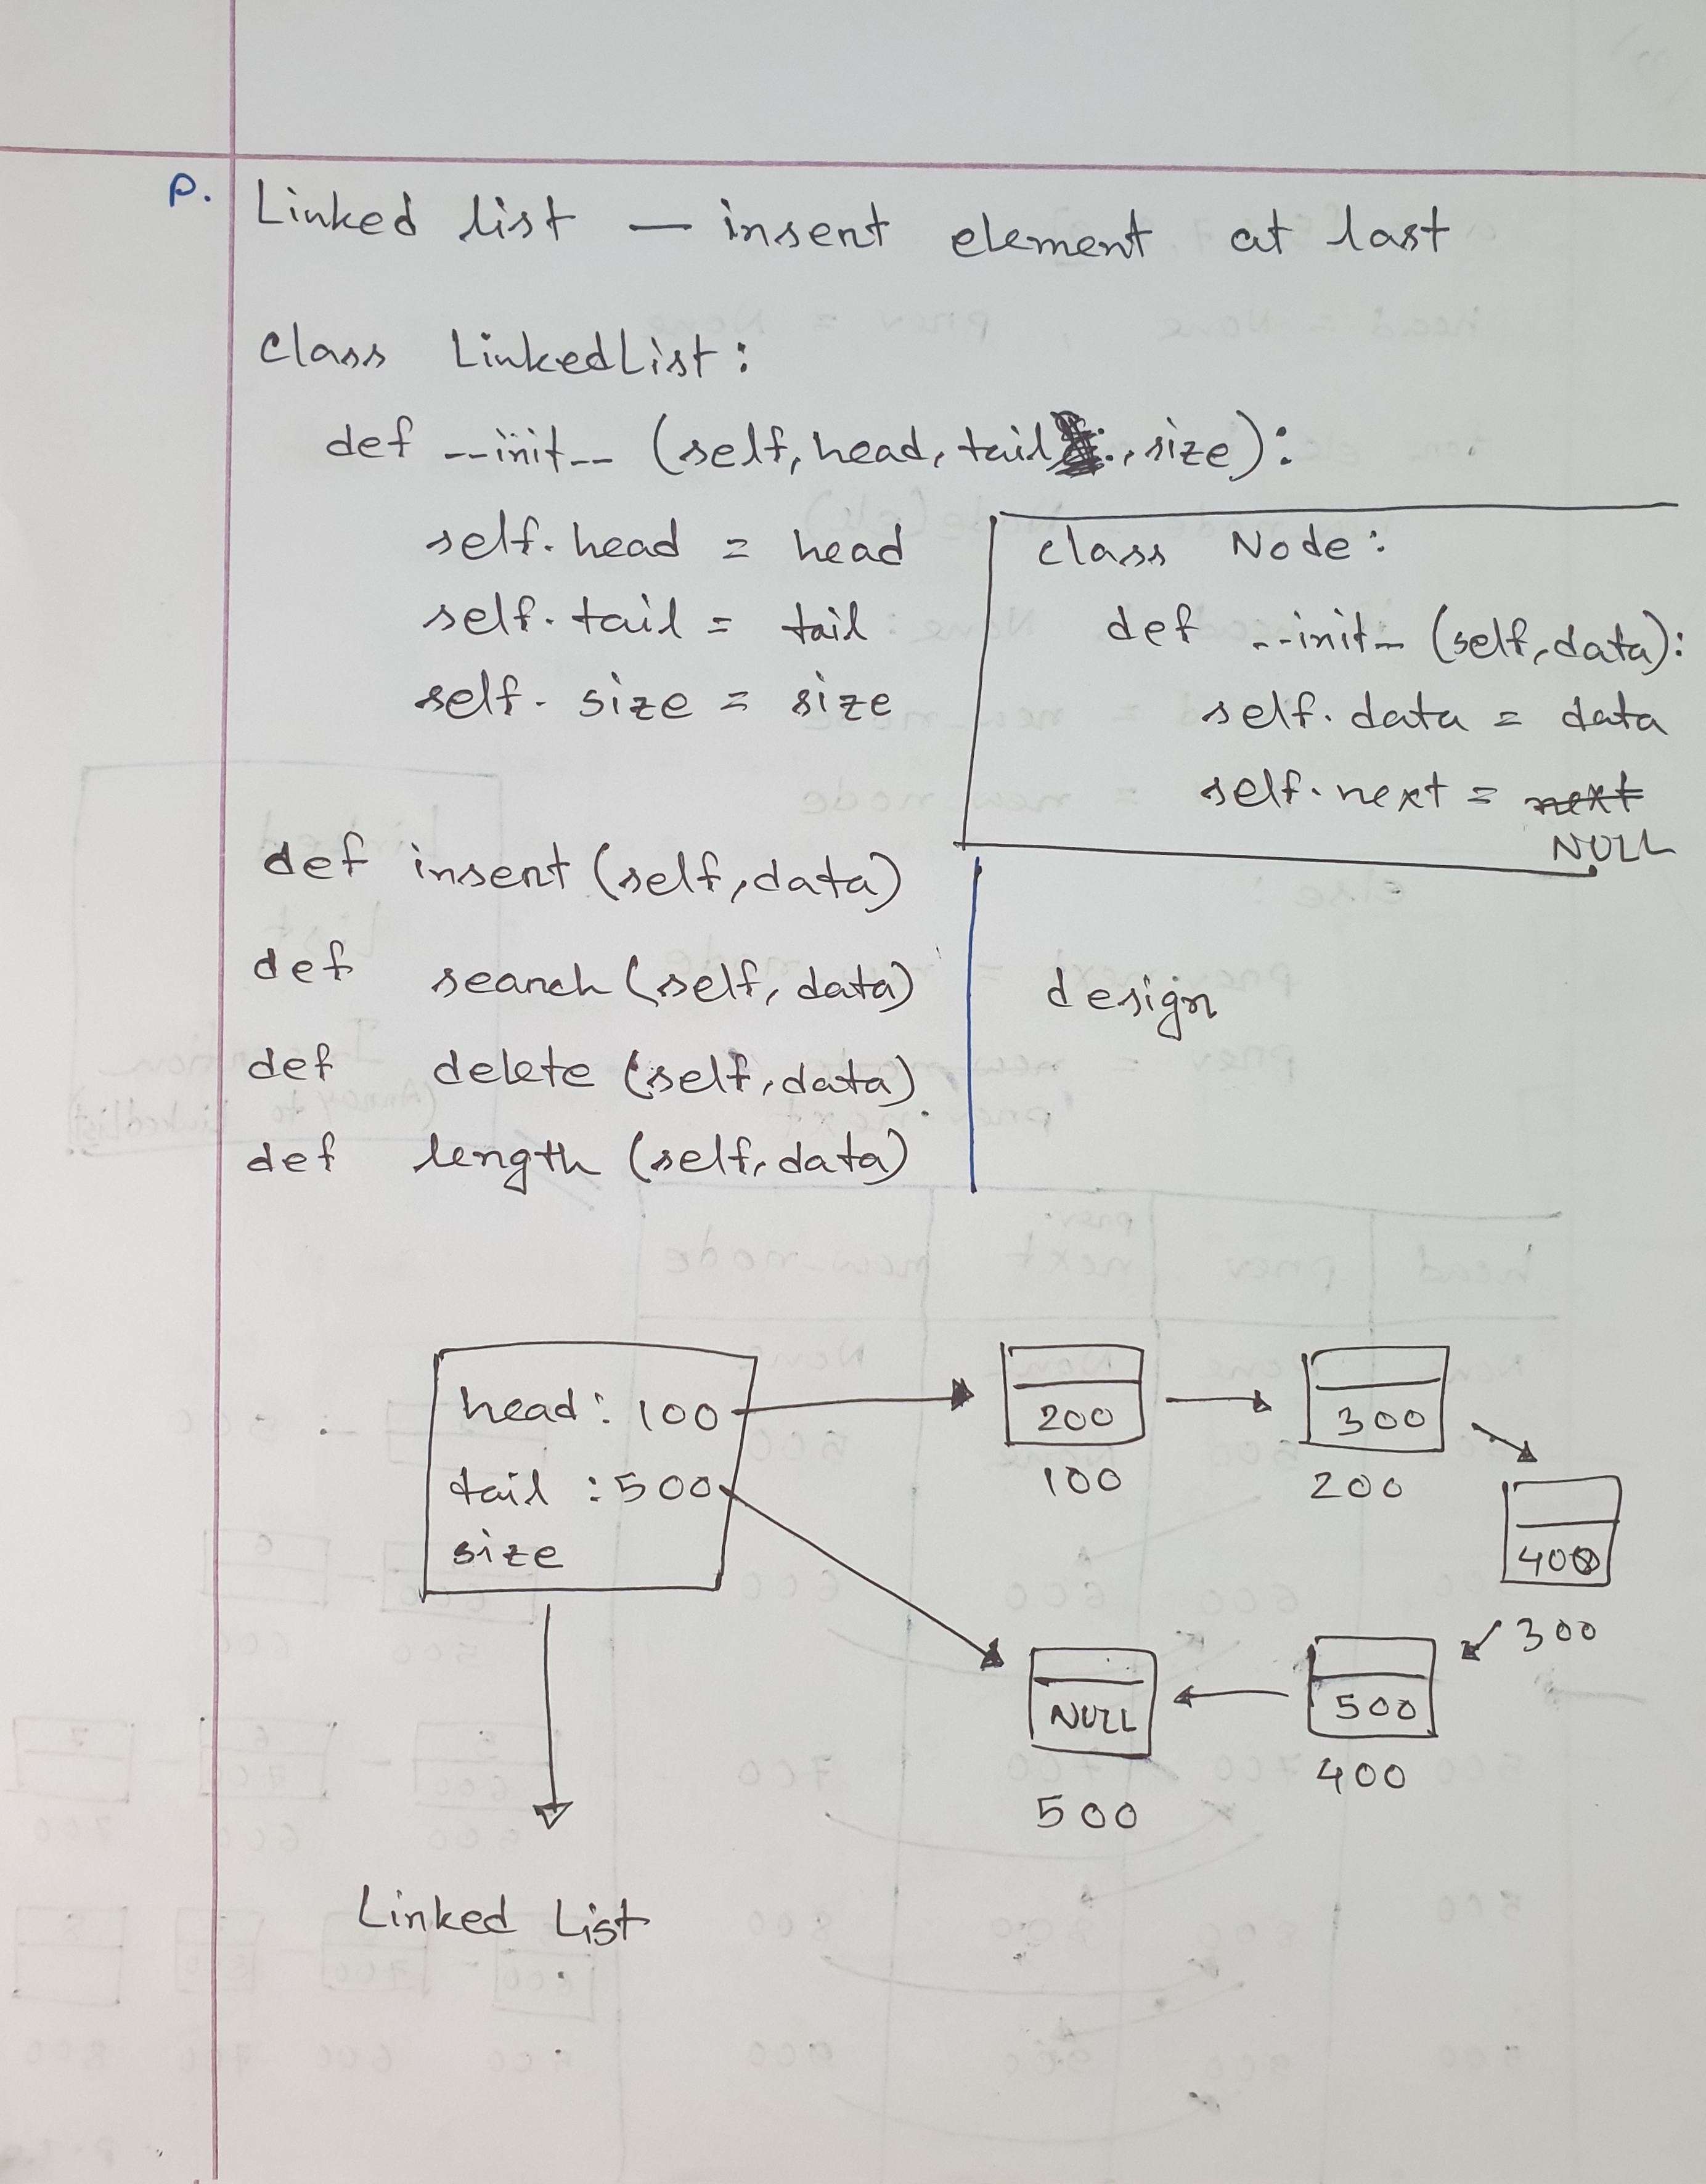 P. Linked list — insert element at last
class LinkedList:
def __init__ (self, head, tail, size):
self.head = head
self.tail = tail
self.size = size
class Node:
def __init__ (self, data):
self.data = data
self.next = next
NULL
def insert (self, data)
def search (self, data)
def delete (self, data)
def length (self, data)
design
head: 100
tail : 500
size
200
100
300
200
400
300
500
400
NULL
500
Linked List